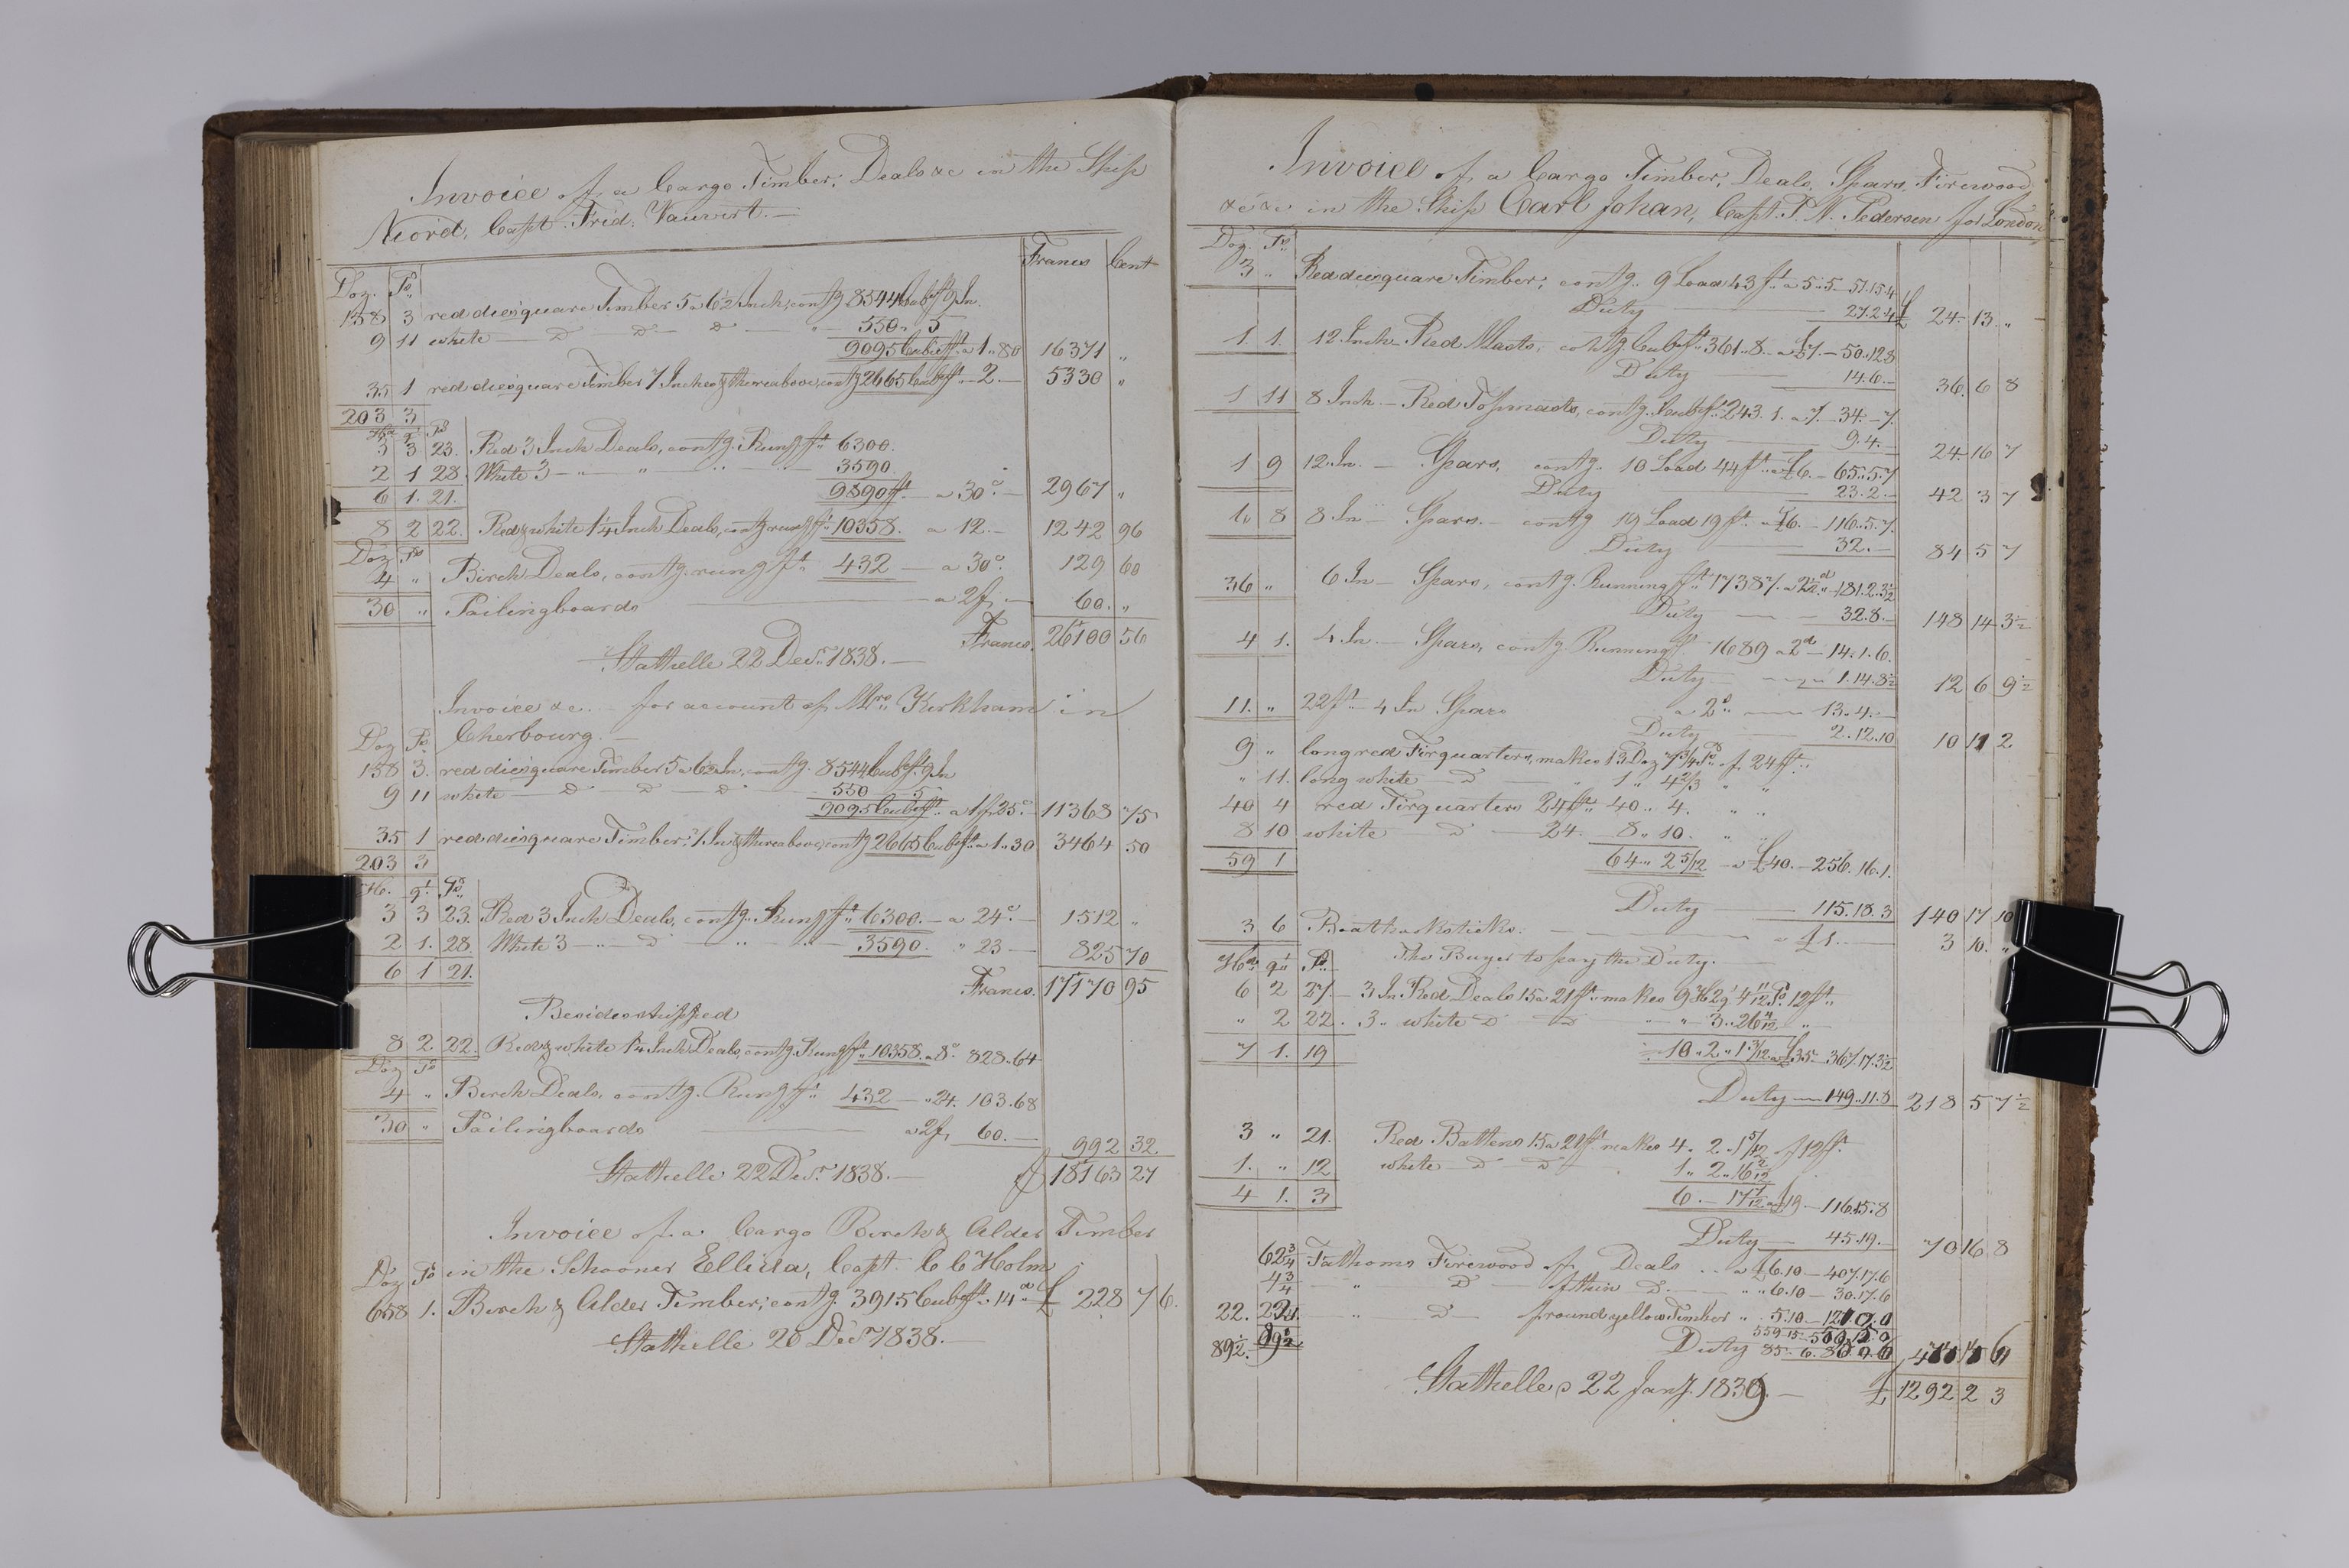 Invoice of a Cargo Timber, Deals &c in the Ship
Nord, Capt. Frid. Vauvert.—
Francs Cent
Doz. Ps
158 3 red diesquare Timber 5 a 6½ Inch, contg 8544 Cubft 9 In.
9 11 white — D — D — D — " — 550 " 5
9095 Cubicft a 1 " 80 16371 "
35 1 red diesquare Timber 7 Inches & thereabove, contg 2665 Cubft " 2.— 5330 "
203 3
Hd qt Ps
3 3 23. Red 3 Inch Deals, contg. Rungft 6300.
2 1 28. White 3 — " — " — " — 3590.
6 1. 21. 9890 ft — a 30c.— 2967 "
8 2 22. Red & white 1¼ Inch Deals, contg rungft 10358. a 12.— 1242 96
Doz Ps
4 " Birch Deals, contg rungft 432 — a 30c. 129 60
30 " Pailingboards — a 2f — 60. "
Francs. 26100 56
Stathelle 22 Decr. 1838.—
Invoice &c. — for account of Mrs Kirkham in
Cherbourg.—
Doz Ps
158 3. red diesquare Timber 5 a 6½ In, contg. 8544 Cubft. 9 In
9 11 white — D — D — D — 550 — 5
9095 Cubicft. a 1f 25c.— 11368 75
35 1 red diesquare Timber, 7 In & thereabove, contg 2665 Cubft a 1 " 30 3464 50
203 3
H. qt. Ps.
3 3 23. Red 3 Inch Deals, contg. Rungft 6300.— a 24c.— 1512 "
2 1. 28. White 3 — " — D — " — " — 3590. " 23 — 825 70
6 1 21. Francs. 17170 95
Besides shipped
8 2. 22. Red & white 1¼ Inch Deals, contg. Rungft 10358. a 8c. 828.64
Doz Ps
4 " Birch Deals, contg. Rungft 432 — " 24. 103.68
30 " Pailingboards — a 2f, 60.—
992 32
Stathelle 22 Decr. 1838.— 18163 27
Invoice of a Cargo Birch & Alder Timber
in the Schooner Ellida, Capt. C C Holm
Doz Ps
658 1. Birch & Alder Timber, contg. 3915 Cubft. 14d £ 228 7 6.
Stathelle 20 Decr 1838.—
Invoice of a Cargo Timber, Deals, Spars, Firewood
&c &c in the Ship Carl Johan, Capt. P. N. Pedersen for London
Doz. Ps.
3 " Red diesquare Timber, contg. 9 Load 43 ft. a 5 " 5 — 51.15.4
Duty — 27.2.4 £ 24 13. "
1. 1. 12 Inch — Red Masts, contg. Cubft 361 " 8. a £7.— 50.12.8
Duty — 14.6.— 36. 6 8
1 11 8 Inch — Red Topmasts, contg. Cubft. 243. 1. a 7. 34.—.7.
Duty — 9.4.— 24 16 7
1 9 12. In. — Spars, contg. 10 Load 44 ft. a £6.— 65.5.7
Duty — 23.2.— 42 3 7
16 8 8 In — Spars.— contg 19 Load 19 ft. a £6.— 116.5.7.
Duty — 32.— 84 5 7
36 " 6 In — Spars, contg. Runningft 17387. a 2½d — 181.2.3½
Duty — 32.8.— 148 14 3½
4 1. 4 In — Spars, contg. Runningft 1689 a 2d — 14.1.6.
Duty — 1.14.8½ 12 6 9½
11. " 22 ft — 4 In Spars a 2d — 13.4.—
Duty — 2.12.10 10 11 2
9 " long red Firquarters, makes 13 Doz 7¾ Ps. of 24 ft.
" 11. long white — D — " 1 " 4⅔ " "
40 4 red Firquarters 24 ft. 40 " 4. " "
8 10 white — D — 24. 8 " 10. " "
59 1 64 " 2 5/12 — a £40.— 256.16.1.
Duty — 115.18.3 140 17 10
3 6 Boathooksticks. — a £1.— 3 10. "
The Buyer to pay the Duty.—
Hd qt Ps
6 2 27.— 3 In. Red Deals 15 a 21 ft makes 9 H 2 q 4 11/12 Ps. 12 ft.
" 2 22. 3 " white D — D " " 3 " 26 4/12 "
7 1. 19 10 " 2 " 1 3/12 a £35.— 367.17.3½
Duty — 149 " 11.8 218 5 7½
3 " 21. Red Battens 15 a 21 ft. makes 4 " 2 " 1 5/12 of 12 ft.
1. " 12 white — D — D — 1 " 2 " 16 2/12
4 1. 3 6.— 17 7/12 a £19.— 116.15.8
Duty — 45.19.— 70 16. 8
62¾ Fathoms Firewood of Deals " a £6.10 — 407.17.6
4¾ " D — of thin D.— " " 6.10 — 30.17.6
22. 22 " D — of round yellow Timber " 5.10 —
89½. 89½ 559.15
Duty 85. 6.
Stathelle 22 Jany. 1839.— £ 1292 2 3